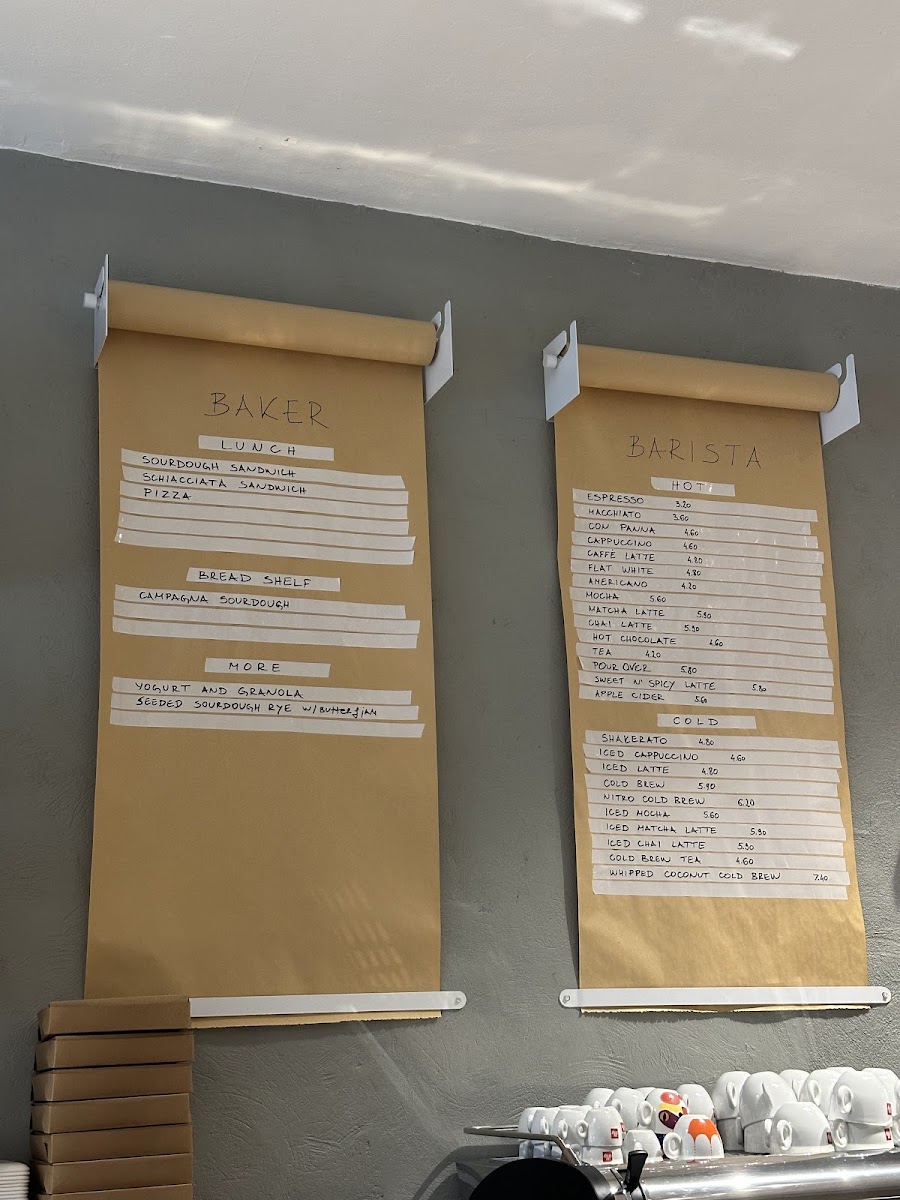 BAKER
LUNCH
SOURDOUGH SANDWICH
SCHIACCIATA SANDWICH
PIZZA
BREAD SHELF
CAMPAGNA SOURDOUGH
MORE
YOGURT AND GRANOLA
SEEDED SOURDOUGH RYE W/BUTTER&JAM
BARISTA
HOT
ESPRESSO 3.20
MACCHIATO 3.60
CON PANNA 4.60
CAPPUCCINO 4.60
CAFFÉ LATTE 4.80
FLAT WHITE 4.80
AMERICANO 4.20
MOCHA 5.60
MATCHA LATTE 5.90
CHAI LATTE 5.90
HOT CHOCOLATE 4.60
TEA 4.20
POUR OVER 5.80
SWEET N' SPICY LATTE 5.80
APPLE CIDER 5.60
COLD
SHAKERATO 4.80
ICED CAPPUCCINO 4.60
ICED LATTE 4.80
COLD BREW 5.90
NITRO COLD BREW 6.20
ICED MOCHA 5.60
ICED MATCHA LATTE 5.90
ICED CHAI LATTE 5.90
COLD BREW TEA 4.60
WHIPPED COCONUT COLD BREW 7.40